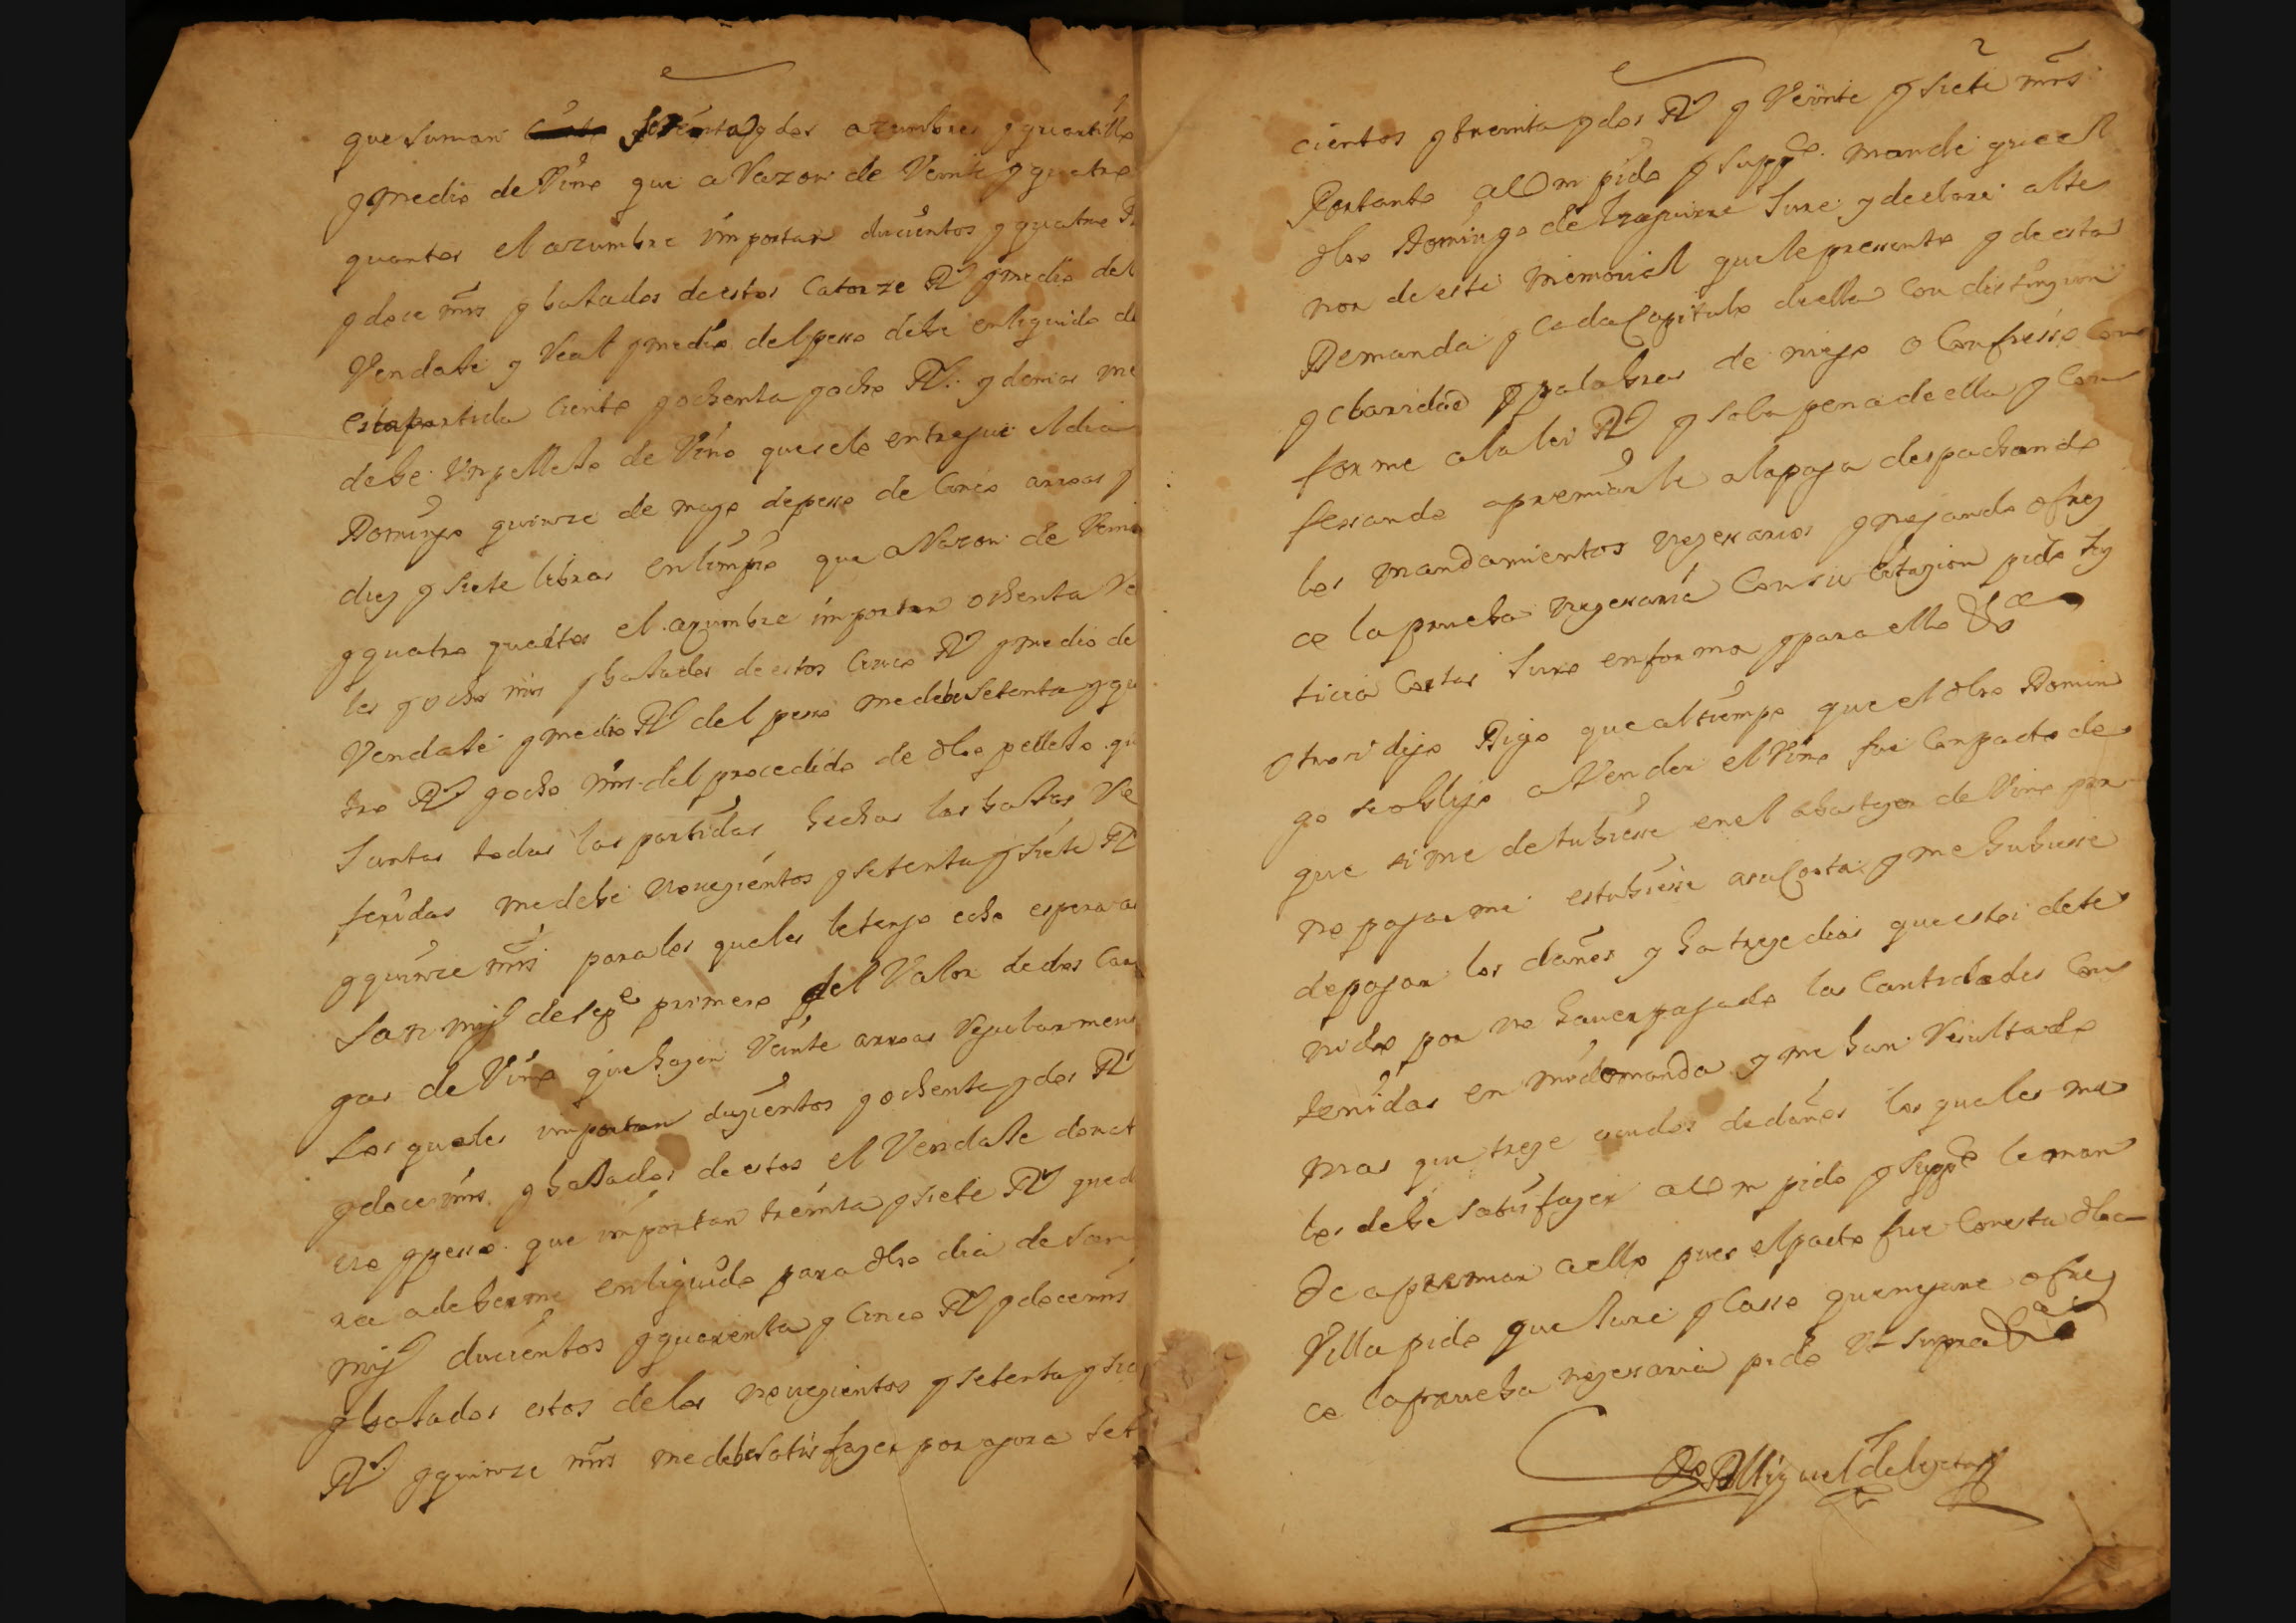 que suman setenta y dos azumbres y quartillo
y medio de Vino que a Razon de Veinte y quatro
quartos el azumbre importan ducientos y quatro R
y doce mrs y bajados de estos Catorze Rs y medio del
Vendaje y Real y medio del pesso debe enliquido de
esta partida Ciento y ochenta y ocho Rs. y demas me
debe Un pellejo de Vino que se lo entregue el dia
Domingo quinze de mayo de pesso de Cinco arroas y
diez y siete libras en limpio que a Razon de Vein
y quatro quartos el azumbre importan ochenta Re
les y ocho mrs y bajados de estos Cinco Rs y medio de
Vendaje y medio Rs del pesso me debe setenta y qu
tro Rs y ocho mrs del procedido de dho pellejo qu
Juntas todas las partidas hechas las bajas Re
feridas me debe novezientos y setenta y siete Rs
y quinze mrs para los quales le tengo echo espera a
San Migl de Sepe primero del Valor de dos Car
gas de Vino que hazen Veinte arroas Regularmen
Los quales importan duzientos y ochenta y dos Rs
y doce mrs y bajados de estos el Vendaje donat
ivo y pesso que importan treinta y siete Rs qued
ra a deberme enliquido para dho dia de San
Migl ducientos y quarenta y Cinco Rs y doce mrs
y bajados estos de los novezientos y setenta y sie
Rs y quinze mrs me debe satisfazer por agora set
2
cientos y treinta y dos Rs y Veinte y siete mrs
Portanto a Vm pido y suppco mande que el
dho Domingo de Izaguirre Jure y declare al te
nor de este memorial que le pressento y de esta
Demanda y Cada Capitulo de ella Con distinzion
y claridad y palabras de niego o Confiesso Con
forme a la lei Rl y so la pena de ella y Con
fessando apremiarle a la paga despachando
los mandamientos nezessarios y negando ofrez
co la prueba nezessaria Con su Citazion pido Jus
ticia Costas Juro en forma y para ello &a
Otrosi digo Digo que al tiempo que el dho Domin
go se obligo a Vender el Vino fue Con pacto de
que si me detubiesse en el abastezer de Vino por
no pagarme estubiesse a su Costa y me hubiesse
de pagar los daños y ha treze dias que estoi dete
nido por no haver pagado las Cantidades Con
tenidas en mi demanda y me han Resultado
mas que treze escudos de daños los quales me
los debe satisfazer a Vm pido y suppco le man
de apremiar a ello pues el pacto fue Con esta dha
Villa pido que Jure y Casso que niegue ofrez
co la prueba nezessaria pido Ut supra &a